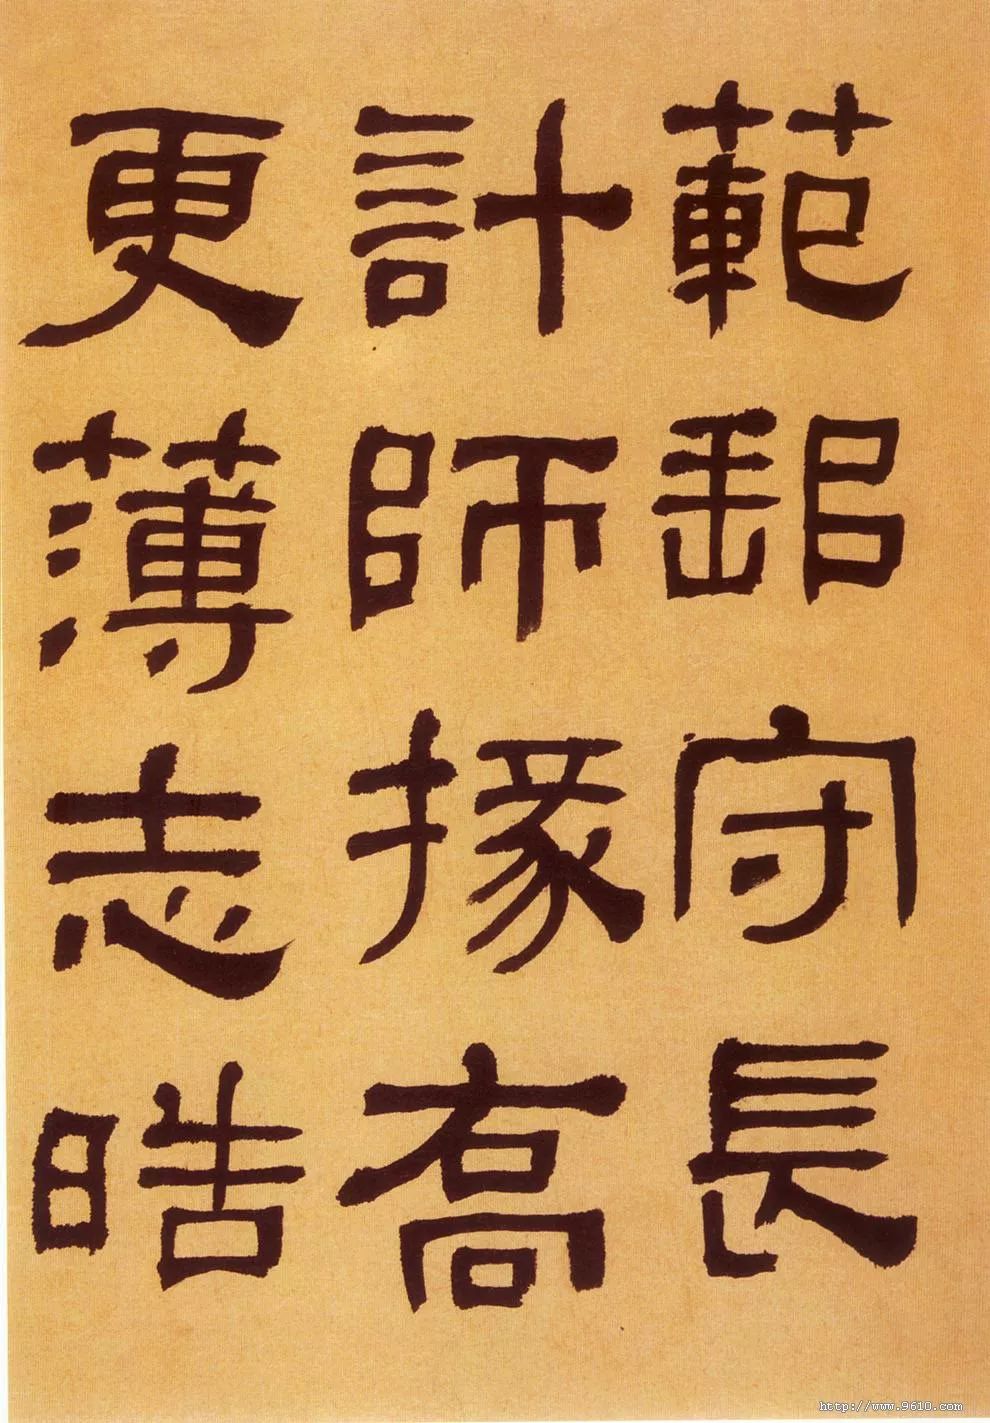 範郵守長
計師掾喬
更薄志晧
http://www.9610.com